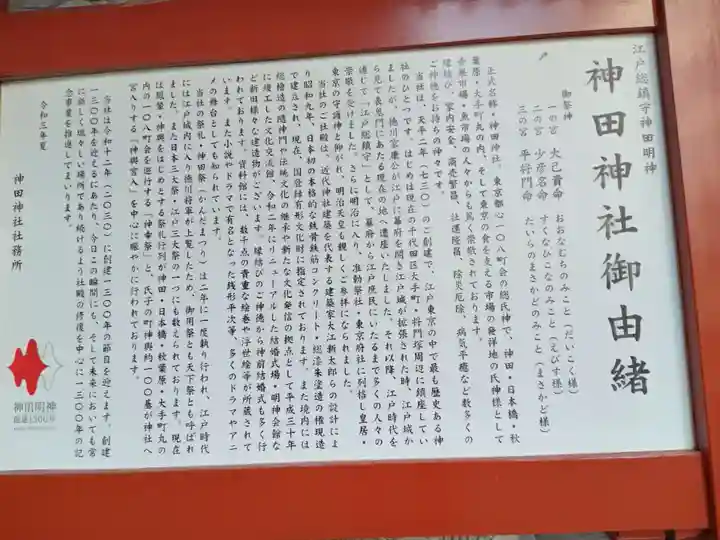 江戸総鎮守神田明神
神田神社御由緒
御祭神
一の宮 大己貴命 おおなむちのみこと(だいこく様)
二の宮 少彦名命 すくなひこなのみこと(えびす様)
三の宮 平将門命 たいらのまさかどのみこと(まさかど様)
正式名称・神田神社。東京都心一〇八町会の総氏神で、神田・日本橋・秋
葉原・大手町丸の内、そして東京の食を支える市場の発祥地の氏神様として
青果市場・魚市場の人々からも篤く崇敬されております。
縁結び、家内安全、商売繁昌、社運隆昌、除災厄除、病気平癒など数多くの
ご神徳をお持ちの神々です。
当社は、天平二年(七三〇)のご創建で、江戸東京の中で最も歴史ある神
社のひとつです。はじめは現在の千代田区大手町・将門塚周辺に鎮座してい
ましたが、徳川家康公が江戸に幕府を開き江戸城が拡張された時、江戸城か
ら見て表鬼門にあたる現在の地へ遷座いたしました。それ以降、江戸時代を
通じて「江戸総鎮守」として、幕府から江戸庶民にいたるまで多くの人々の
崇敬を受けました。さらに明治に入り、准勅祭社・東京府社に列格し皇居・
東京の守護神と仰がれ、明治天皇も親しくご参拝になられました。
当社のご社殿は、近代神社建築を代表する建築家大江新太郎らの設計によ
り昭和九年、日本初の本格的な鉄骨鉄筋コンクリート・総漆朱塗造の権現造
で建立され、現在、国登録有形文化財に指定されております。また境内には
総檜造の隨神門や伝統文化の継承や新たな文化発信の拠点として平成三十年
に竣工した文化交流館、令和二年にリニューアルした結婚式場・明神会館な
ど新旧様々な建造物がございます。縁結びのご神徳から神前結婚式も多く行
われております。資料館には、数千点の貴重な絵巻や浮世絵等が所蔵されて
います。また小説やドラマで有名となった銭形平次等、多くのドラマやアニ
メの舞台としても知られています。
当社の祭礼「神田祭(かんだまつり)」は二年に一度執り行われ、江戸時代
には江戸城内に入り徳川将軍が上覧したため、御用祭とも天下祭とも呼ばれ
ました。また日本三大祭・江戸三大祭の一つにも数えられております。現在
は鳳輦・神輿をはじめとする祭礼行列が神田・日本橋・秋葉原・大手町丸の
内の一〇八町会を巡行する「神幸祭」と、氏子の町神輿約一〇〇基が神社へ
宮入りする「神輿宮入」を中心に賑やかに行われております。
当社は令和十二年(二〇三〇)に創建一三〇〇年の節目を迎えます。創建
一三〇〇年を迎えるにあたり、今日この瞬間にも、そして未来においても常
に新しく瑞々しい場所であり続けるよう社殿の修復を中心に一三〇〇年の記
念事業を推進してまいります。
令和三年夏
神田神社社務所
神田明神
御遷1300年